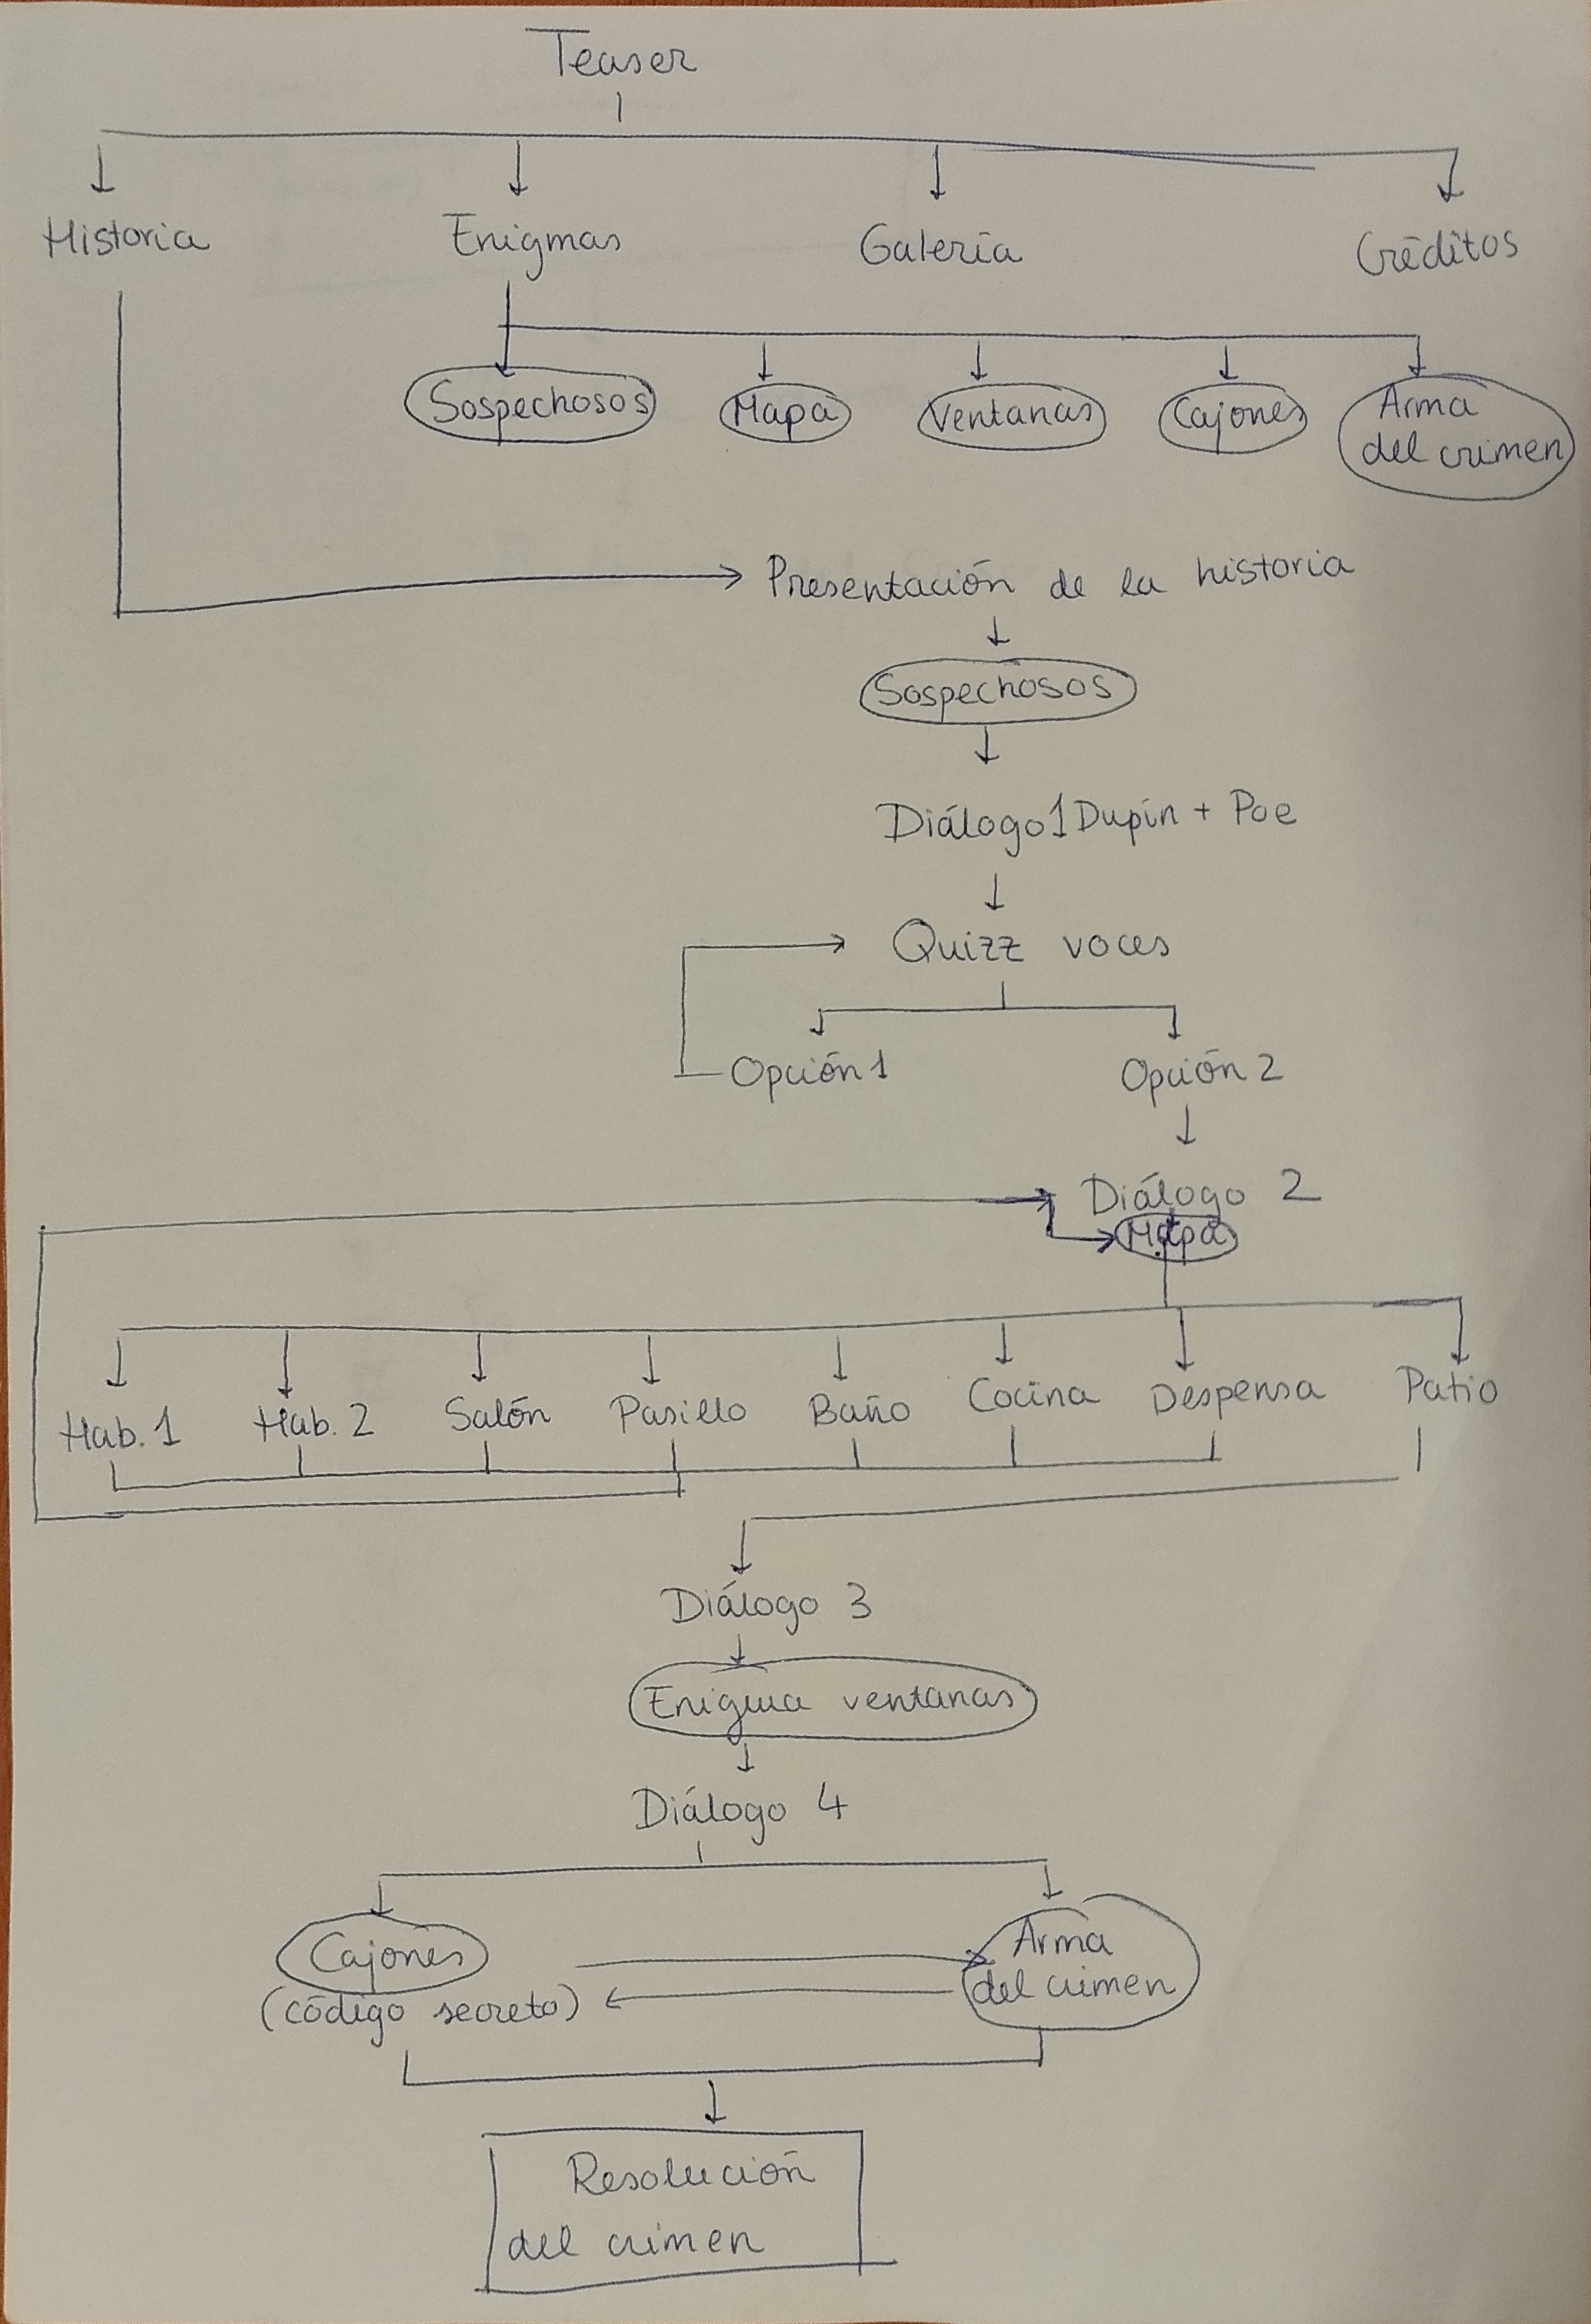 Teaser
Historia
Enigmas
Galería
Créditos
Sospechosos
Mapa
Ventanas
Cajones
Arma
del crimen
Presentación de la historia
Sospechosos
Diálogo 1 Dupin + Poe
Quizz voces
Opción 1
Opción 2
Diálogo 2
Mapa
Hab. 1
Hab. 2
Salón
Pasillo
Baño
Cocina
Despensa
Patio
Diálogo 3
Enigma ventanas
Diálogo 4
Cajones
(código secreto)
Arma
del crimen
Resolución
del crimen